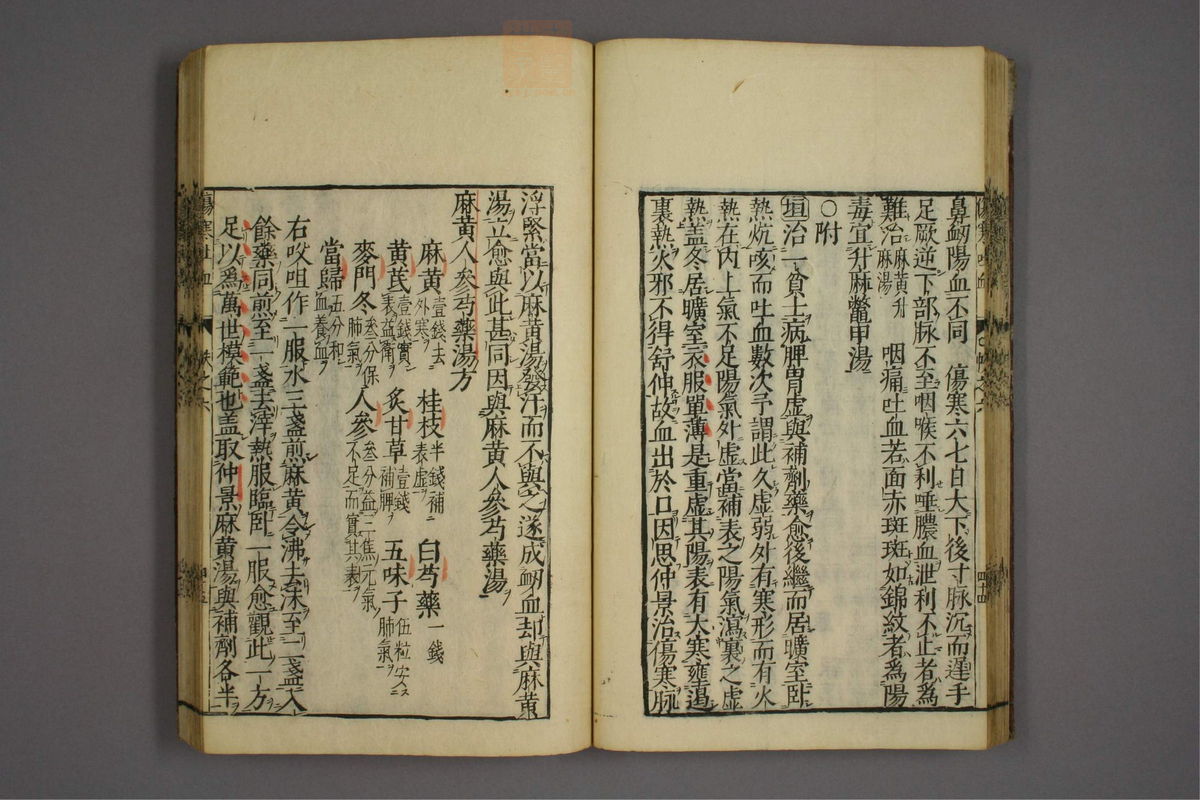 鼻衂陽血不同　傷寒六七日大下後寸脉沉而遲手
足厥逆下部脉不至咽喉不利唾膿血泄利不止者為
難治麻黄升麻湯　咽痛吐血若面赤斑斑如錦紋者為陽
毒宜升麻鱉甲湯
○附
垣治一貧士病脾胃虛與補劑藥愈後繼而居曠室臥
熱炕咳而吐血數次予謂此久虛弱外有寒形而有火
熱在内上氣不足陽氣外虛當補表之陽氣瀉裏之虛
熱盖冬居曠室衣服單薄是重虛其陽表有大寒壅遏
裏熱火邪不得舒伸故血出於口因思仲景治傷寒脉
浮緊當以麻黄湯發汗而不與之遂成衂血却與麻黄
湯立愈與此甚同因與麻黄人參芍藥湯
麻黄人參芍藥湯方
麻黄壹錢去外寒　桂枝半錢補表虛　白芍藥一錢
黄芪壹錢實表益衛　炙甘草壹錢補脾　五味子伍粒安肺氣
麥門冬叁分保肺氣　人參叁分益三焦元氣不足而實其表
當歸五分和血養血
右㕮咀作一服水三盞煎麻黄令沸去沫至二盞入
餘藥同煎至一盞去滓熱服臨臥一服愈觀此一方
足以為萬世模範也盖取仲景麻黄湯與補劑各半